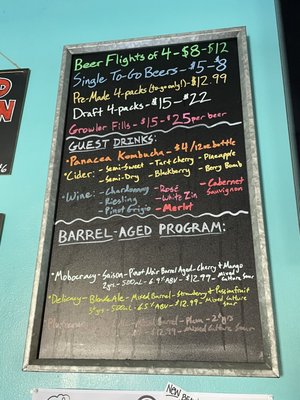 Beer Flights of 4 - $8-$12
Single To-Go Beers - $5-8
Pre-Made 4-packs (to-go only!) - $12.99
Draft 4-packs - $15 - $22
Growler Fills - $15 - $25 per beer
GUEST DRINKS:
• Panacea Kombucha - $4/12oz bottle
• Cider: - Semi-Sweet - Tart Cherry - Pineapple
- Semi-Dry - Blackberry - Berry Bomb
• Wine: - Chardonnay - Rosé - Cabernet
- Riesling - White Zin Sauvignon
- Pinot Grigio - Merlot
BARREL-AGED PROGRAM:
• Mobocracy - Saison - Pinot Noir Barrel Aged - Cherry + Mango
2 yrs - 500mL - 6.9% ABV - $12.99 Mixed Culture Sour
• Delicacy - Blonde Ale - Mixed Barrel - Strawberry + Passionfruit
500mL - 6.5% ABV - $12.99 Mixed Culture Sour
Barrel - Plum -
$12.99 - Mixed Culture Sour
NEW